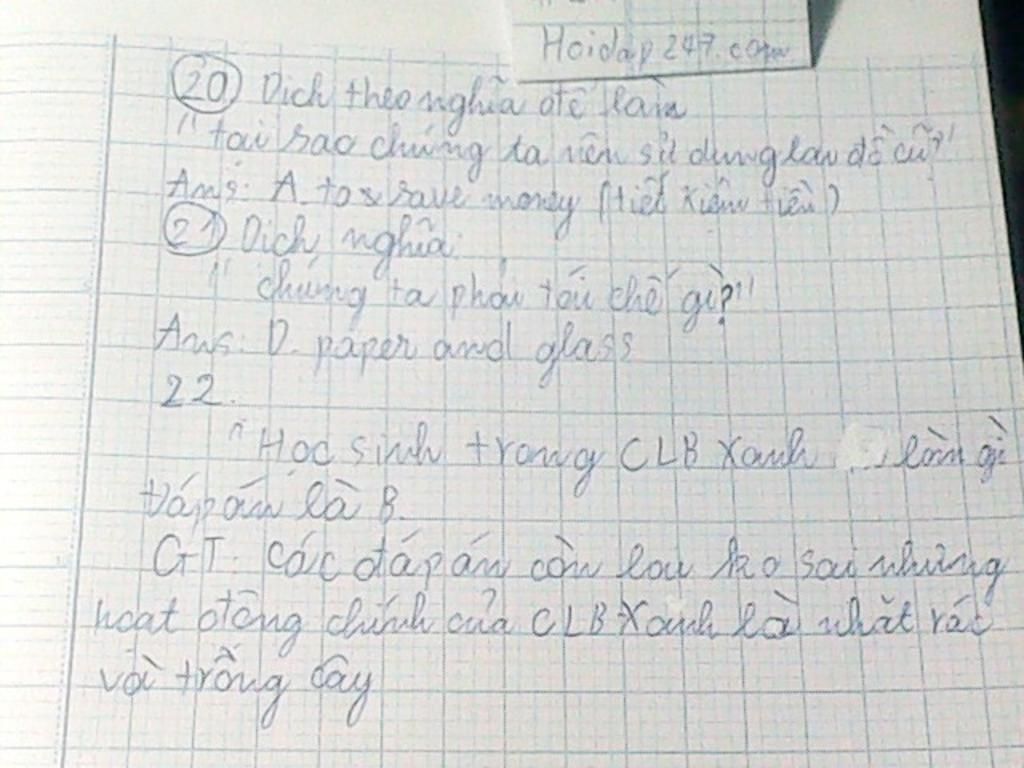 Hoidap247.com
20 Dịch theo nghĩa để làm
"tại sao chúng ta nên sử dụng lại đồ cũ?"
Ans: A. to save money (tiết kiệm tiền)
21 Dịch nghĩa:
"chúng ta phải tái chế gì?"
Ans: D. paper and glass
22.
"Học sinh trong CLB Xanh làm gì
đáp án là B.
GT: các đáp án còn lại ko sai nhưng
hoạt động chính của CLB Xanh là nhặt rác
và trồng cây